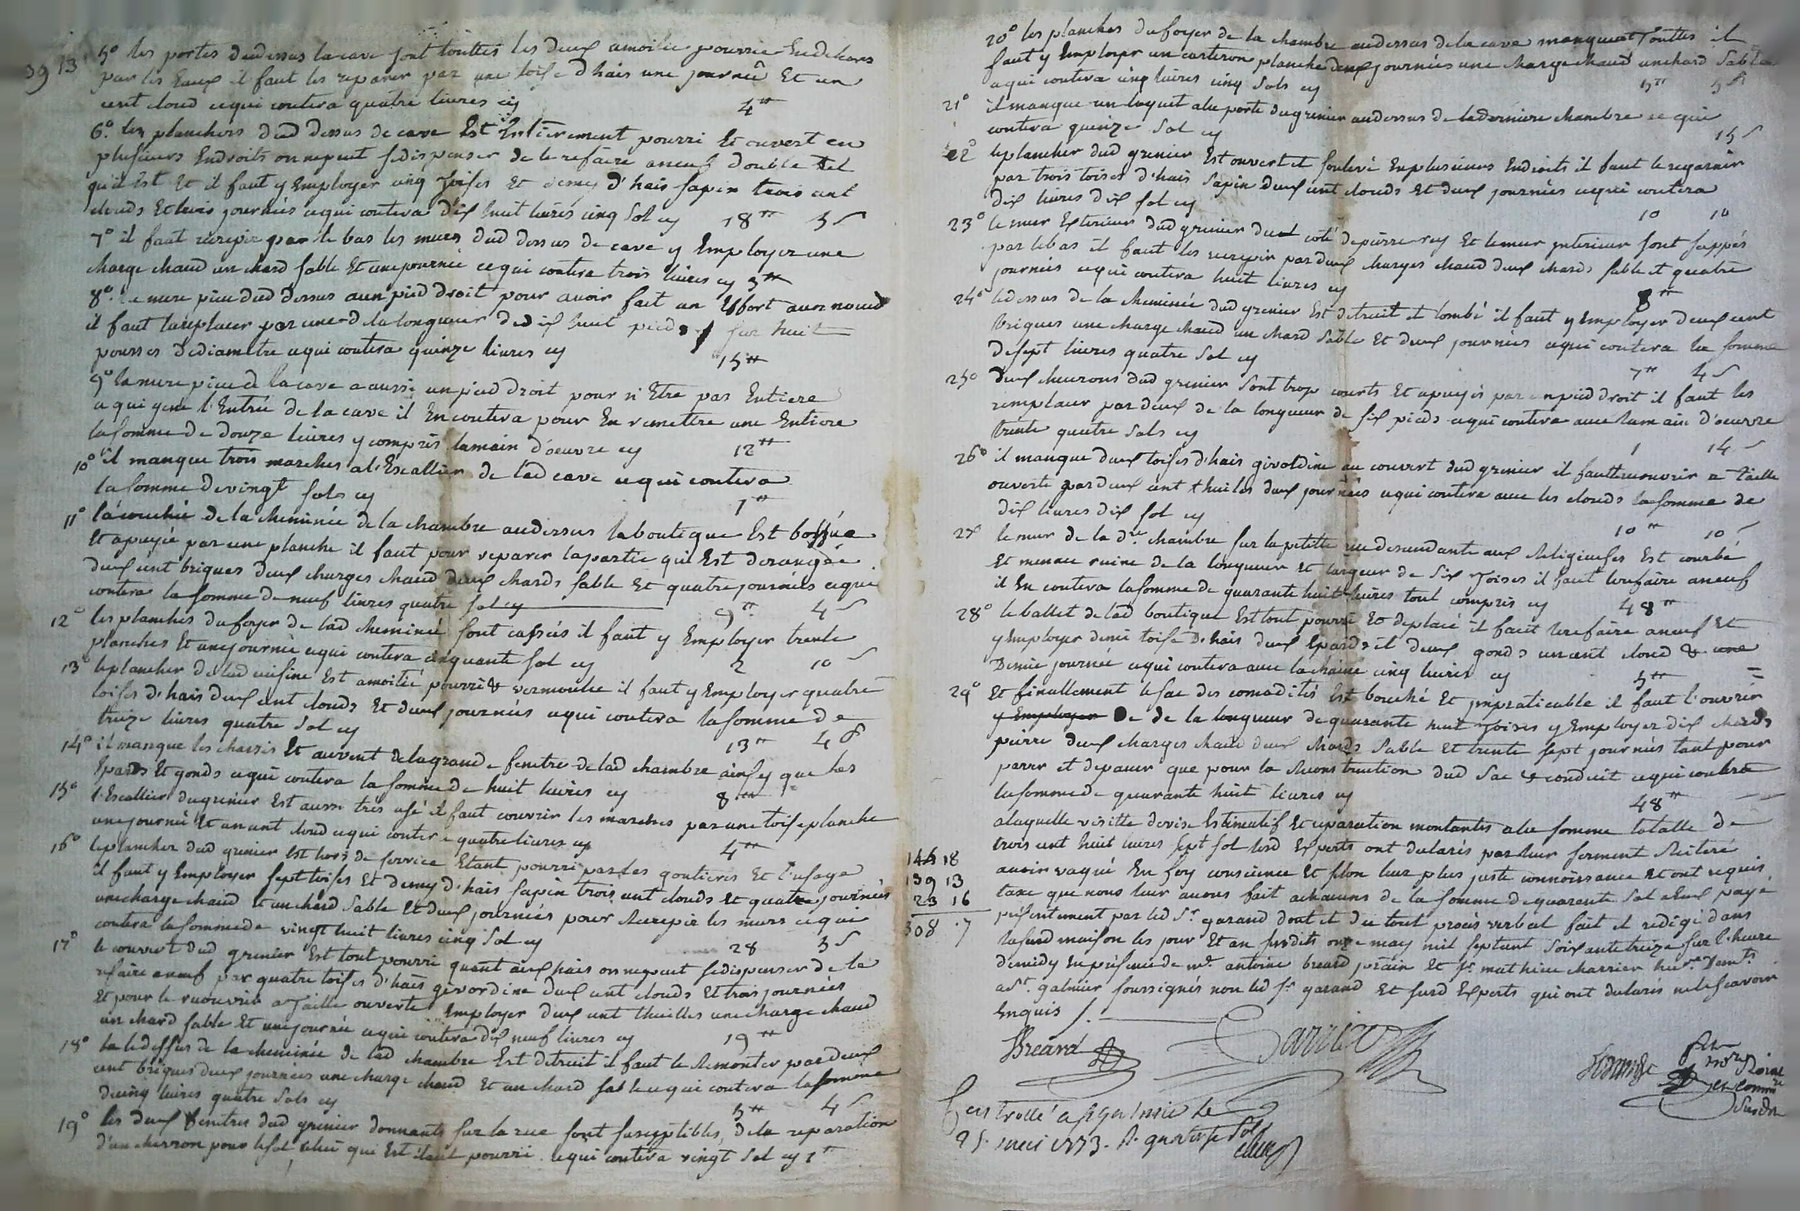 39 13
5° les portes dud dessus la cave sont touttes les deux amoitié pourrie En dehors
par les Eaux il faut les reparer par une toise d'hais une journée Et un
cent cloud cequi coutera quatre livres cy 4tt
6° les planchers dud dessus de cave Est Entièrement pourri Et ouvert en
plusieurs Endroits on nepeut sedispenser de le refaire aneuf double tel
qu'il Est Et il faut y Employer cinq toises Et demy d'hais sapin trois cent
clouds Et trois journées cequi coutera dix huit livres cinq sol cy 18tt 5 s
7° il faut recrepir par le bas les murs dud dessus de cave y Employer une
charge chaud un chard sable Et une journée cequi coutera trois livres cy 3tt
8° la mere piece dud dessus a un pied droit pour avoir fait un Effort au noeud
il faut la replacer par une de la longueur de dix huit pieds sur huit
pousses de diametre cequi coutera quinze livres cy
15tt
9° la mere piece de la cave a aussi un pied droit pour n'Etre pas Entiere
ce qui gene l'Entrée de la cave il En coutera pour En remettre une Entiere
la somme de douze livres y compris lamain d'oeuvre cy 12tt
10° il manque trois marches al'Escallier de lad cave cequi coutera
la somme de vingt sols cy 1tt
11° de la cheminée de la chambre audessus la boutique Est
Et apuyée par une planche il faut pour reparer la partie qui Est derangée
deux cent briques deux charges chaud deux chards sable Et quatre journées cequi
coutera la somme de neuf livres quatre sol cy 9tt 4 s
12° les planches du foyer de lad cheminée sont cassées il faut y Employer trente
planches Et une journée cequi coutera cinquante sol cy 2 10 s
13° le plancher de lad cuisine Est amoitié pourri & vermoulu il faut y Employer quatre
toises d'hais deux cent clouds Et deux journées cequi coutera la somme de
treize livres quatre sol cy 13tt 4 s
14° il manque les chassis Et auvent de la grande fenetre de lad chambre ainsy que les
Epards Et gonds cequi coutera la somme de huit livres cy 8tt
15° l'Escallier du grenier Est aussi très usé il faut couvrir les marches par une toise planche
une journée Et un cent cloud cequi coutera quatre livres cy 4tt
16° le plancher dud grenier Est hors de service Etant pourri par les goutieres Et l'usage
il faut y Employer sept toises Et demy d'hais sapin trois cent clouds Et quatre journées
une charge chaud Et un chard sable Et deux journées pour Recrepir les murs cequi
coutera la somme de vingt huit livres cinq sol cy 28 5 s
17° le couvert dud grenier Est tout pourri quant aux hais on nepeut sedispenser de le
refaire aneuf par quatre toises d'hais givordine deux cent clouds Et trois journées
Et pour le recouvrir a Taille ouverte Employer deux cent thuilles une charge chaud
un chard sable Et une journée cequi coutera dix neuf livres cy 19tt
18° le dessus de la cheminée de lad chambre Est detruit il faut le Remonter par deux
cent briques deux journées une charge chaud Et un chard sable cequi coutera la somme
de cinq livres quatre sols cy 5tt 4 s
19° les deux fenetres dud grenier donnants sur la rue sont susceptibles de la reparation
d'un cherron pour le sol celui qui Est Etant pourri cequi coutera vingt sol cy 1tt
20° les planches du foyer de la chambre audessus de la cave manquent touttes il
faut y Employer un carteron planche deux journées une charge chaud un chard sable
cequi coutera cinq livres cinq sols cy 5tt 5 s
21° il manque un loquet a la porte du grenier audessus de la derniere chambre ce qui
coutera quinze sol cy 15 s
22° le plancher dud grenier Est ouvert et soulevé En plusieurs Endroits il faut le regarnir
par trois toises d'hais sapin deux cent clouds Et deux journées cequi coutera
dix livres dix sol cy 10 10
23° le mur Exterieur dud grenier du coté de pierre rey Et le mur interieur sont sappés
par le bas il faut les recrepir par deux charges chaud deux chards sable et quatre
journées cequi coutera huit livres cy 8tt
24° le dessus de la cheminée dud grenier Est detruit et tombé il faut y Employer deux cent
briques une charge chaud un chard sable Et deux journées cequi coutera la somme
de sept livres quatre sol cy 7tt 4 s
25° deux cheurons dud grenier sont trop courts Et apuyés par un pied droit il faut les
remplacer par deux de la longueur de six pieds cequi coutera avec la main d'oeuvre
trente quatre sols cy 1 14 s
26° il manque deux toises d'hais givordine au couvert dud grenier il faut le recouvrir a Taille
ouverte par deux cent thuiles deux journées cequi coutera avec les clouds la somme de
dix livres dix sol cy 10tt 10 s
27 le mur de la dte chambre sur la petitte rue descendante aux Religieuses Est courbé
Et menace ruine de la longueur Et largeur de Six Toises il faut le refaire aneuf
il En coutera la somme de quarante huit livres tout compris cy 48tt
28° le ballet de lad boutique Est tout pourri Et deplacé il faut le refaire aneuf Et
y Employer demie toise d'hais deux Epards et deux gonds un cent cloud & une
Demie journée cequi coutera avec la chaine cinq livres cy 5tt
29° Et finallement le sac des comodités Est bouché Et impraticable il faut l'ouvrir
y Employer De de la longueur de quarante huit Toises y Employer dix chards
pierre deux charges chaud deux chards sable Et trente sept journées tant pour
paver et depaver que pour la Reconstruction dud sac & conduit cequi coutera
la somme de quarante huit livres cy 48tt
a laquelle visitte devise Estimatif Et reparation montants a la somme totalle de
trois cent huit livres sept sol lesd Experts ont declarés par leur serment Reiteré
avoir vaqué En foy conscience Et selon leur plus juste connoissance Et ont requis
taxe que nous leur avons fait achacuns de la somme de quarante sol a Eux payé
presentement par led Sr garand dont et du tout procès verbal fait et redigé dans
lasusd maison les jour Et an susdits onze may mil septcent soixante treize sur l'heure
demidy En presence de me antoine breard Et Sr mathieu charrier
a St galmier soussignés non led Sr garand Et susd Experts qui ont declarés ne le scavoir
Enquis
145 18
139 13
23 16
308 7
Breard
Controllé a St galmier le
25 mai 1773. R. quatorze sols